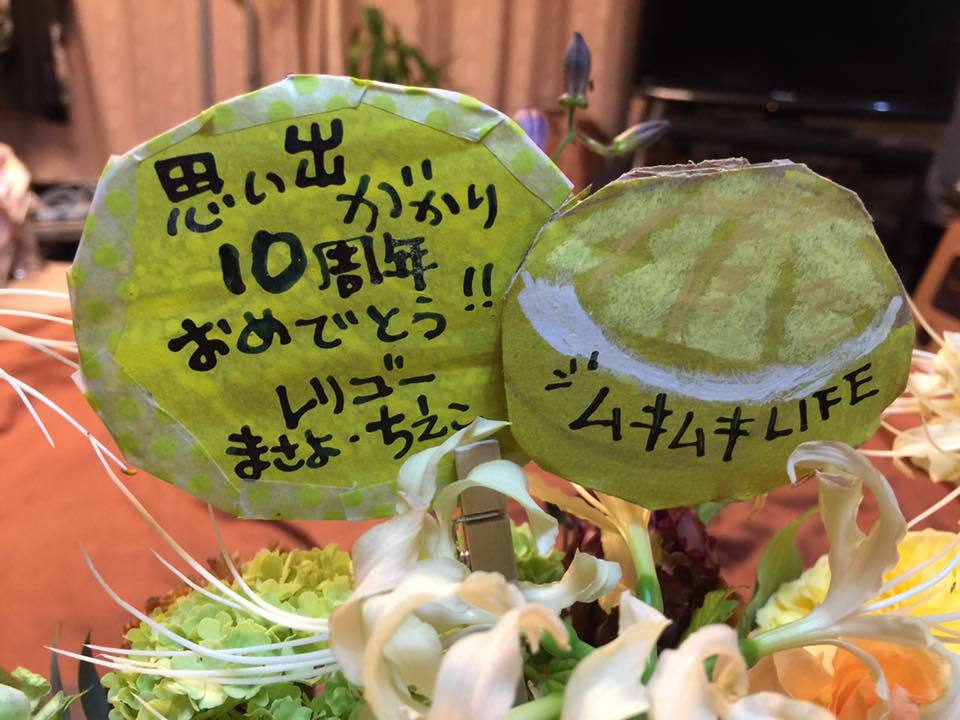 思い出
がかり
10周年
おめでとう!!
レリゴー
まさよ・ちえこ
ムキムキLIFE